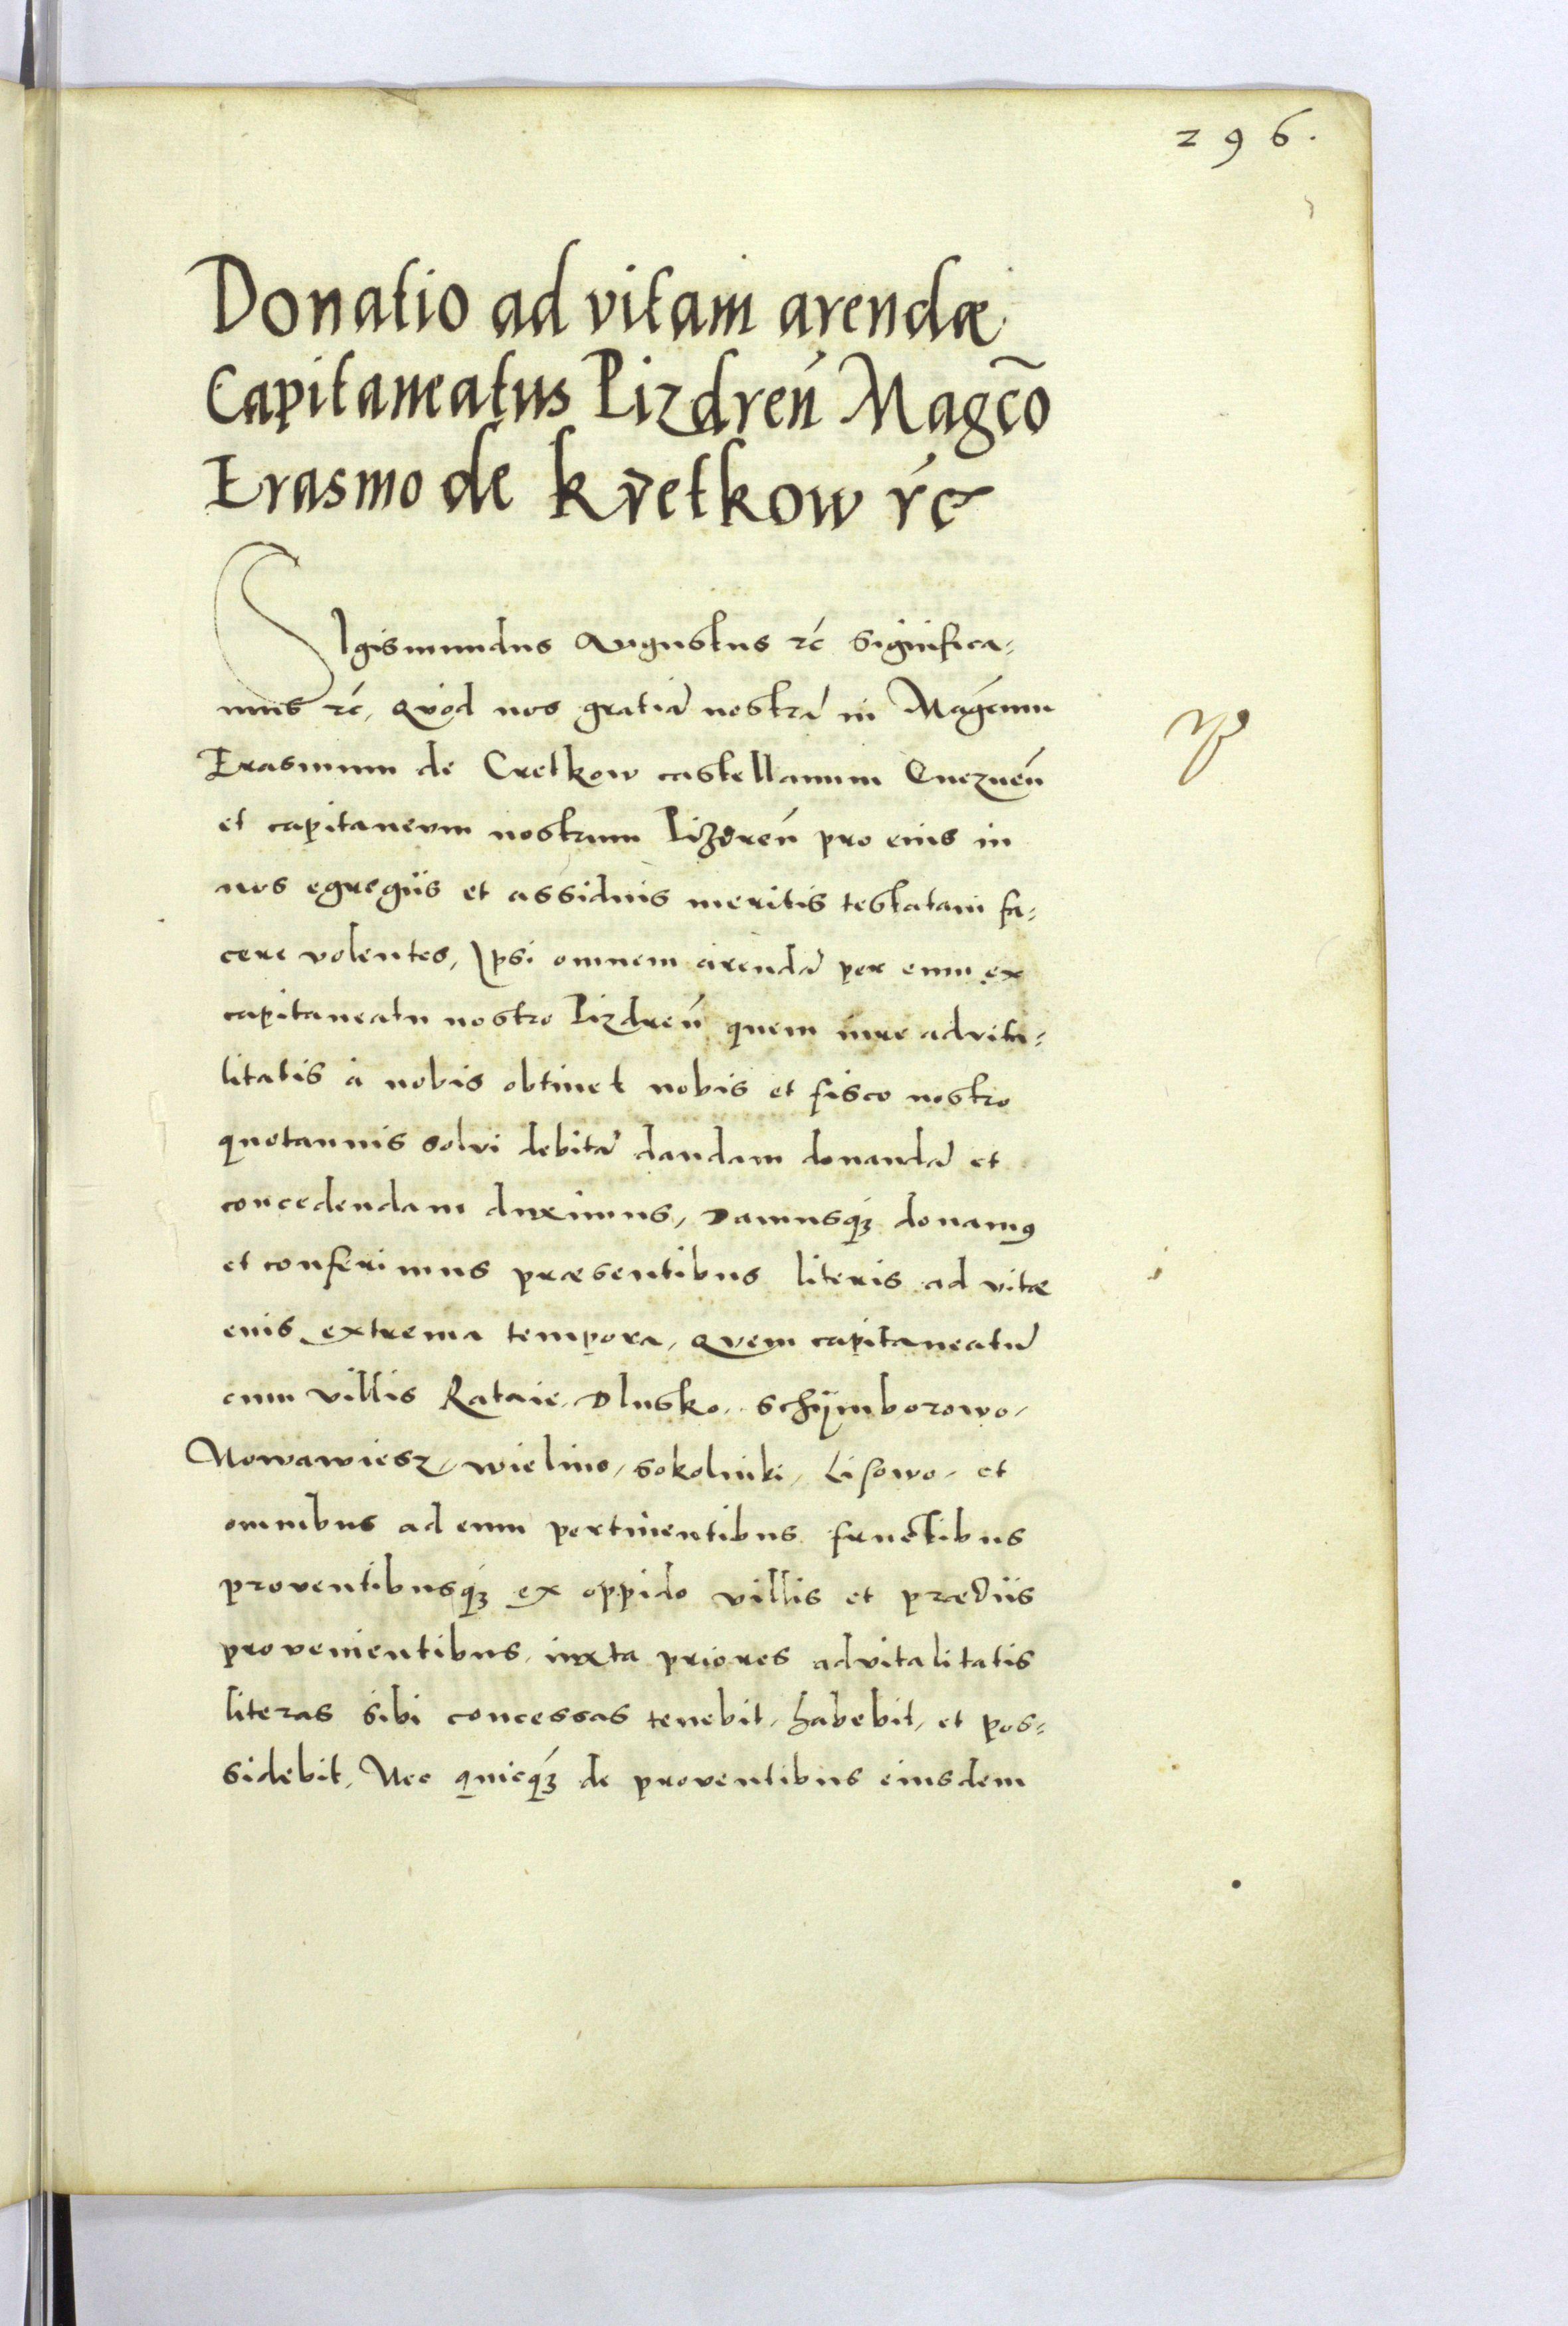 296.
Donatio ad vitam arendæ
Capitaneatus Pizdreń Magc̄o
Erasmo de kretkow rć
Sigismundus Augustus rć significa-
mus rć, quod nos gratiā nostrā in Magćum
Erasmum de Cretkow castellanum Gnezneń
et capitaneum nostrum Pizdreń pro eius in
nos egregiis et assiduis meritis testatam fa-
cere volentes, Ipsi omnem arendā per eum ex
capitaneatu nostro Pizdreń quem iure advita-
litatis à nobis obtinet nobis et fisco nostro
quotannis solvi debitā dandam donandā et
concedendam duximus, Damusqȝ donamꝰ
et conferimus præsentibus literis ad vitæ
eius extrema tempora, quem capitaneatū
cum villis Rataie, Dlusko, Schÿmborowo,
Nowawiesz, Wielino, Sokolniki, Lisowo, et
omnibus ad eum pertinentibus fructibus
proventibusqȝ ex oppido villis et prædiis
provenientibus, iuxta priores advitalitatis
literas sibi concessas tenebit, habebit, et pos-
sidebit, Nec quicqȝ de proventibus eiusdem